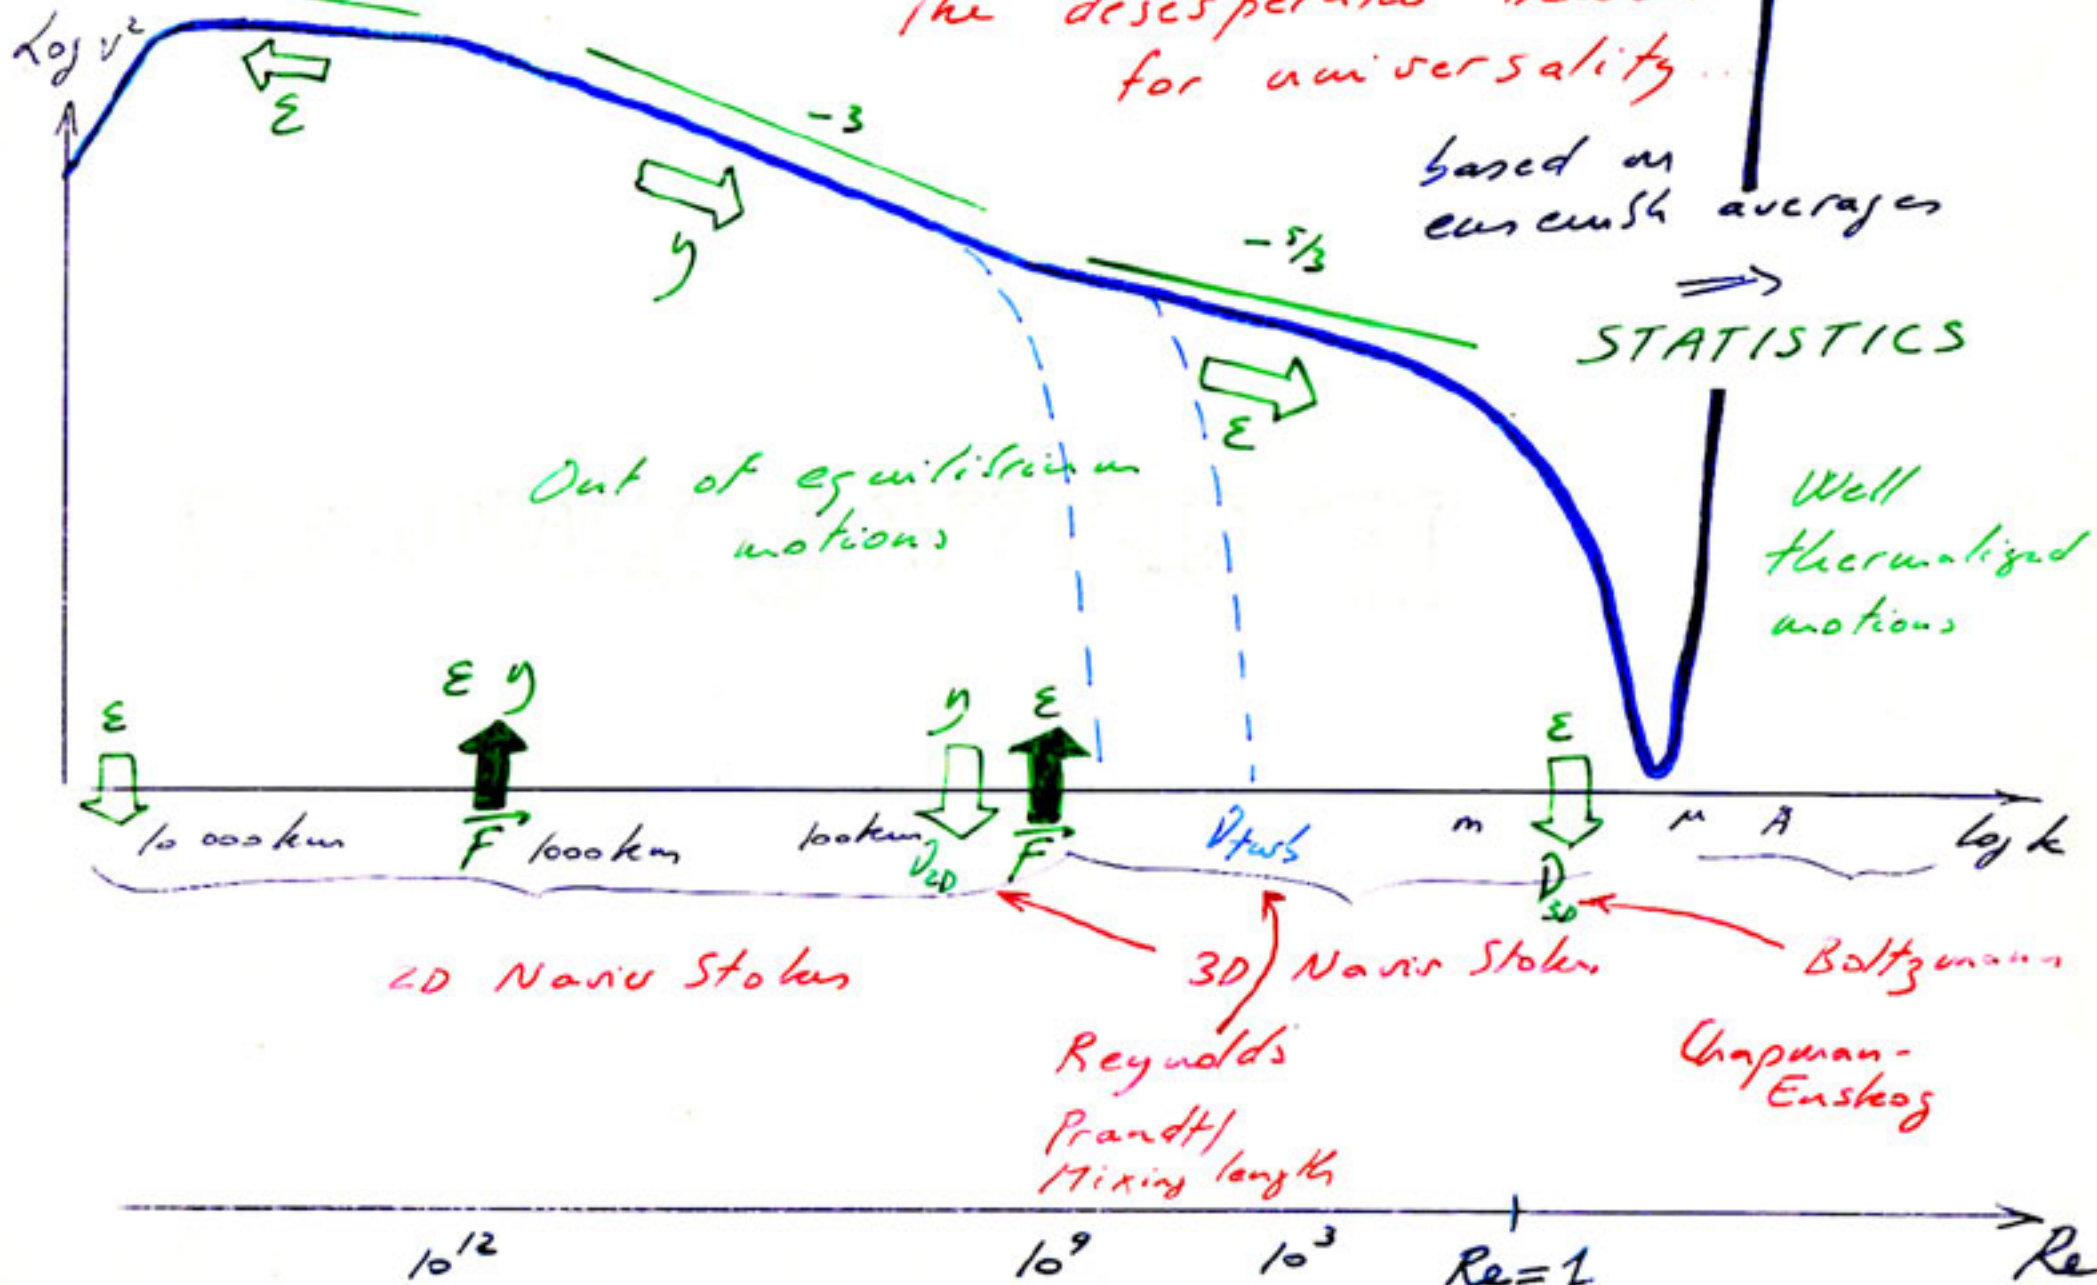 The desesperated
for universality...
based on
averages
⇒
STATISTICS
Log v²
ε
-3
η
-5/3
ε
Out of equilibrium
motions
Well
thermalized
motions
ε
ε η
η
ε
ε
10 000 km
F
1000 km
100 km
D2D
F
Dturb
m
D3D
μ
Å
log k
2D Navier Stokes
3D Navier Stokes
Boltzmann
Reynolds
Prandtl
Mixing length
Chapman-
Enskog
10¹²
10⁹
10³
Re=1
Re